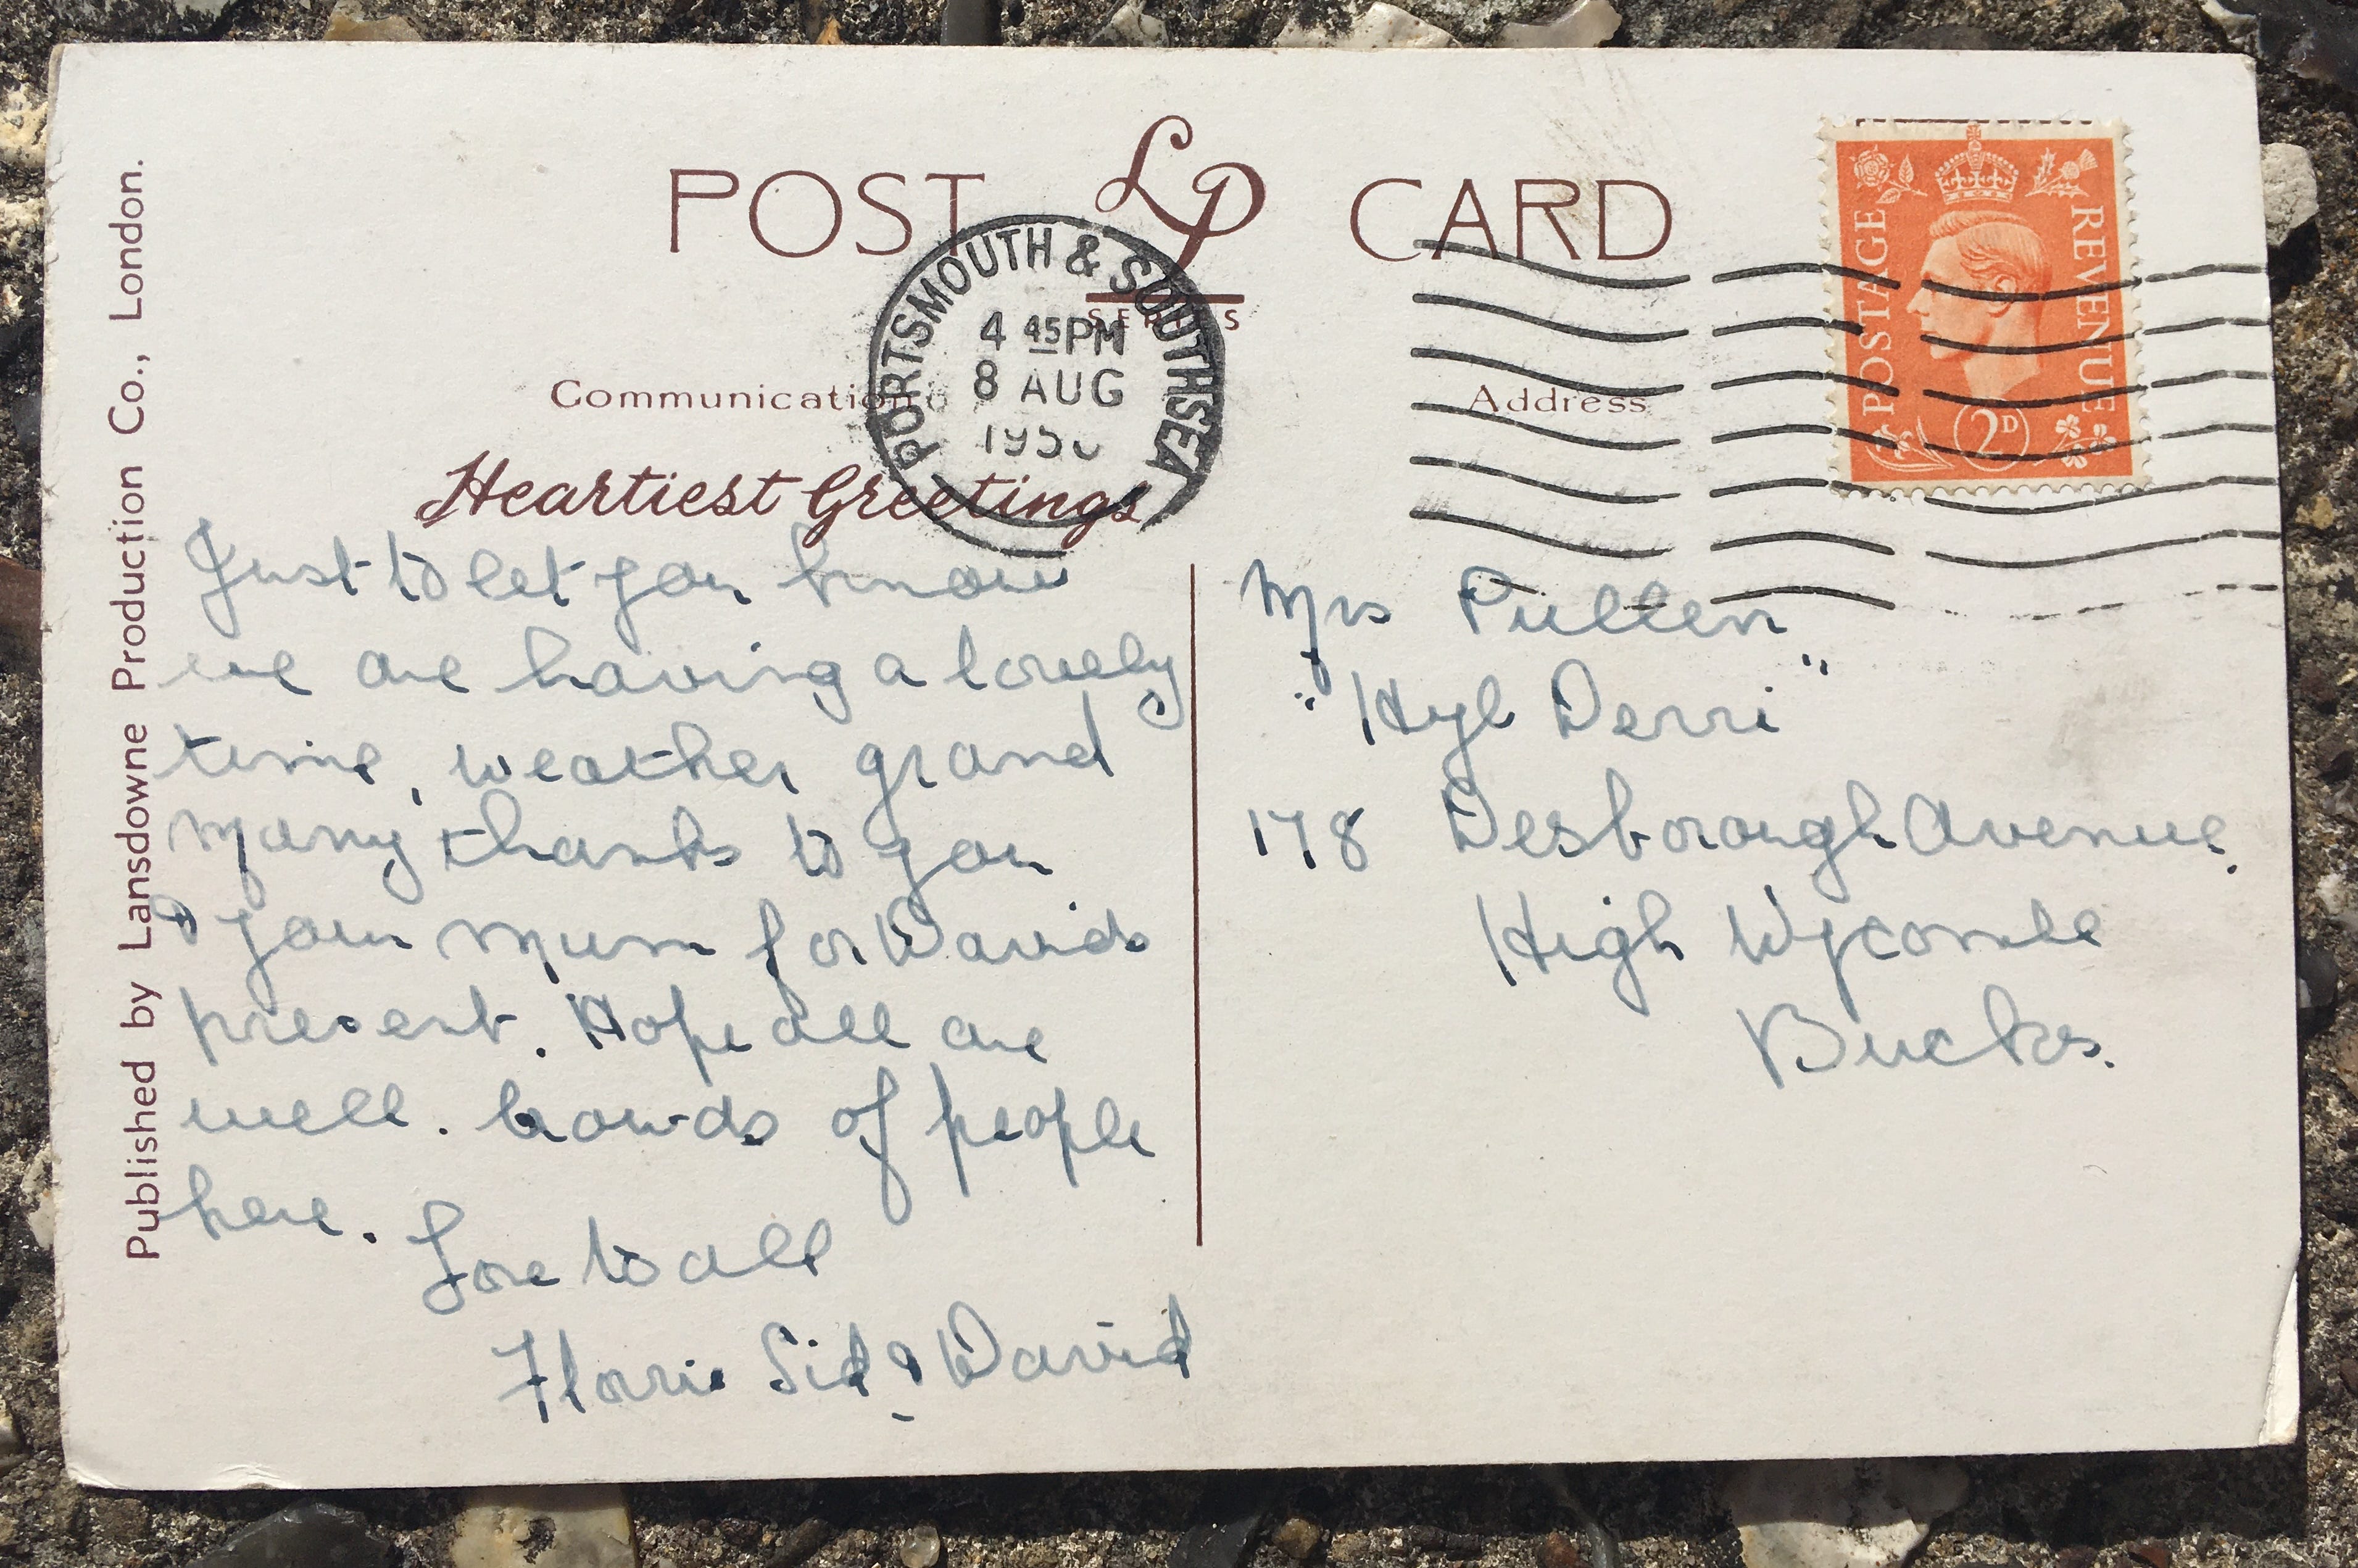 Published by Lansdowne Production Co., London.
POST LP CARD
SERIES
PORTSMOUTH & SOUTHSEA
4 45 PM
8 AUG
POSTAGE REVENUE
2D
Communication
Address
Heartiest Greetings
Just to let you know
we are having a lovely
time, weather grand
Many thanks to you
& your Mum for Davids
present. Hope all are
well. Crowds of people
here.
Love to all
Florrie Sid & David
Mrs Pullen
"Hyl Derri"
178 Desborough Avenue,
High Wycombe
Bucks.